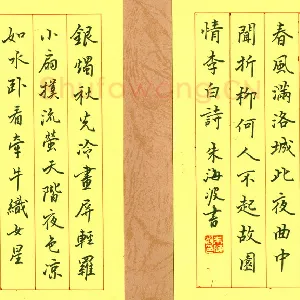 春風滿洛城此夜曲中
聞折柳何人不起故園
情李白詩朱海波書
銀燭秋光冷畫屏輕羅
小扇撲流螢天階夜色涼
如水卧看牽牛織女星
Shufawang.CN